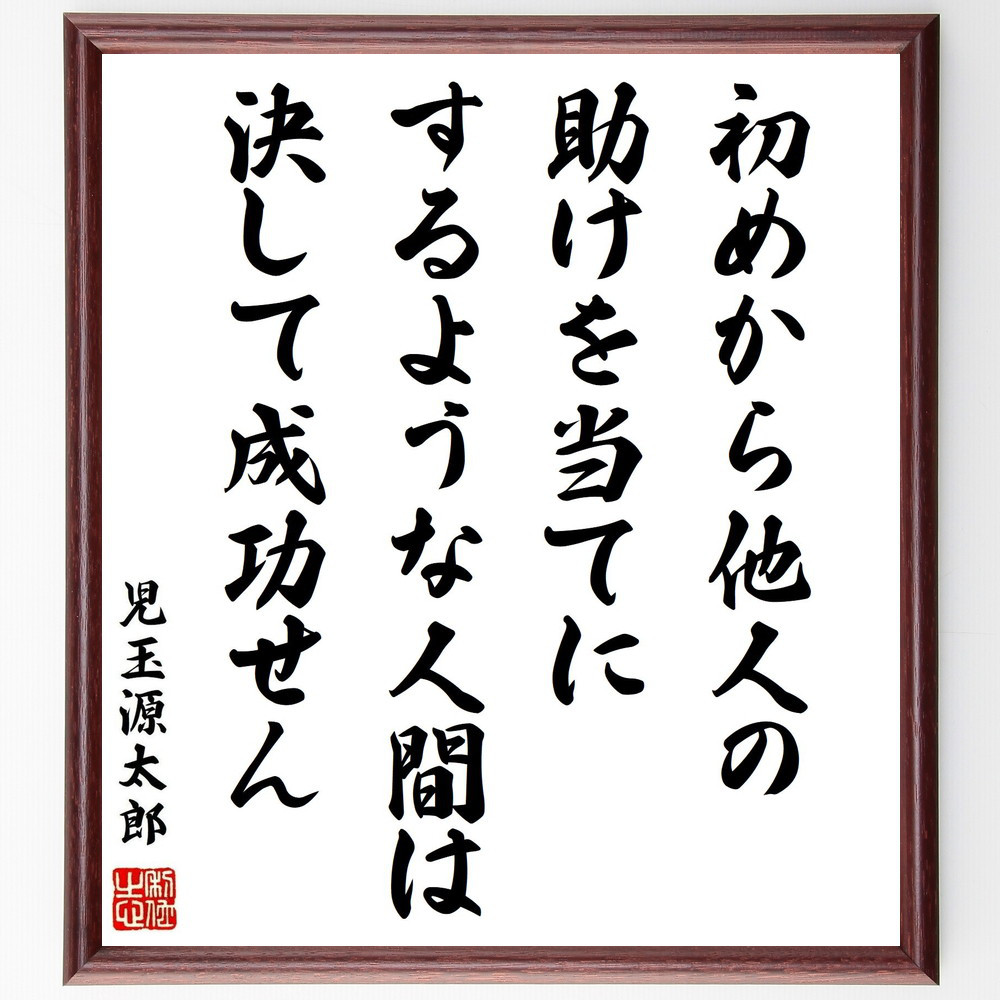 初めから他人の
助けを当てに
するような人間は
決して成功せん
児玉源太郎